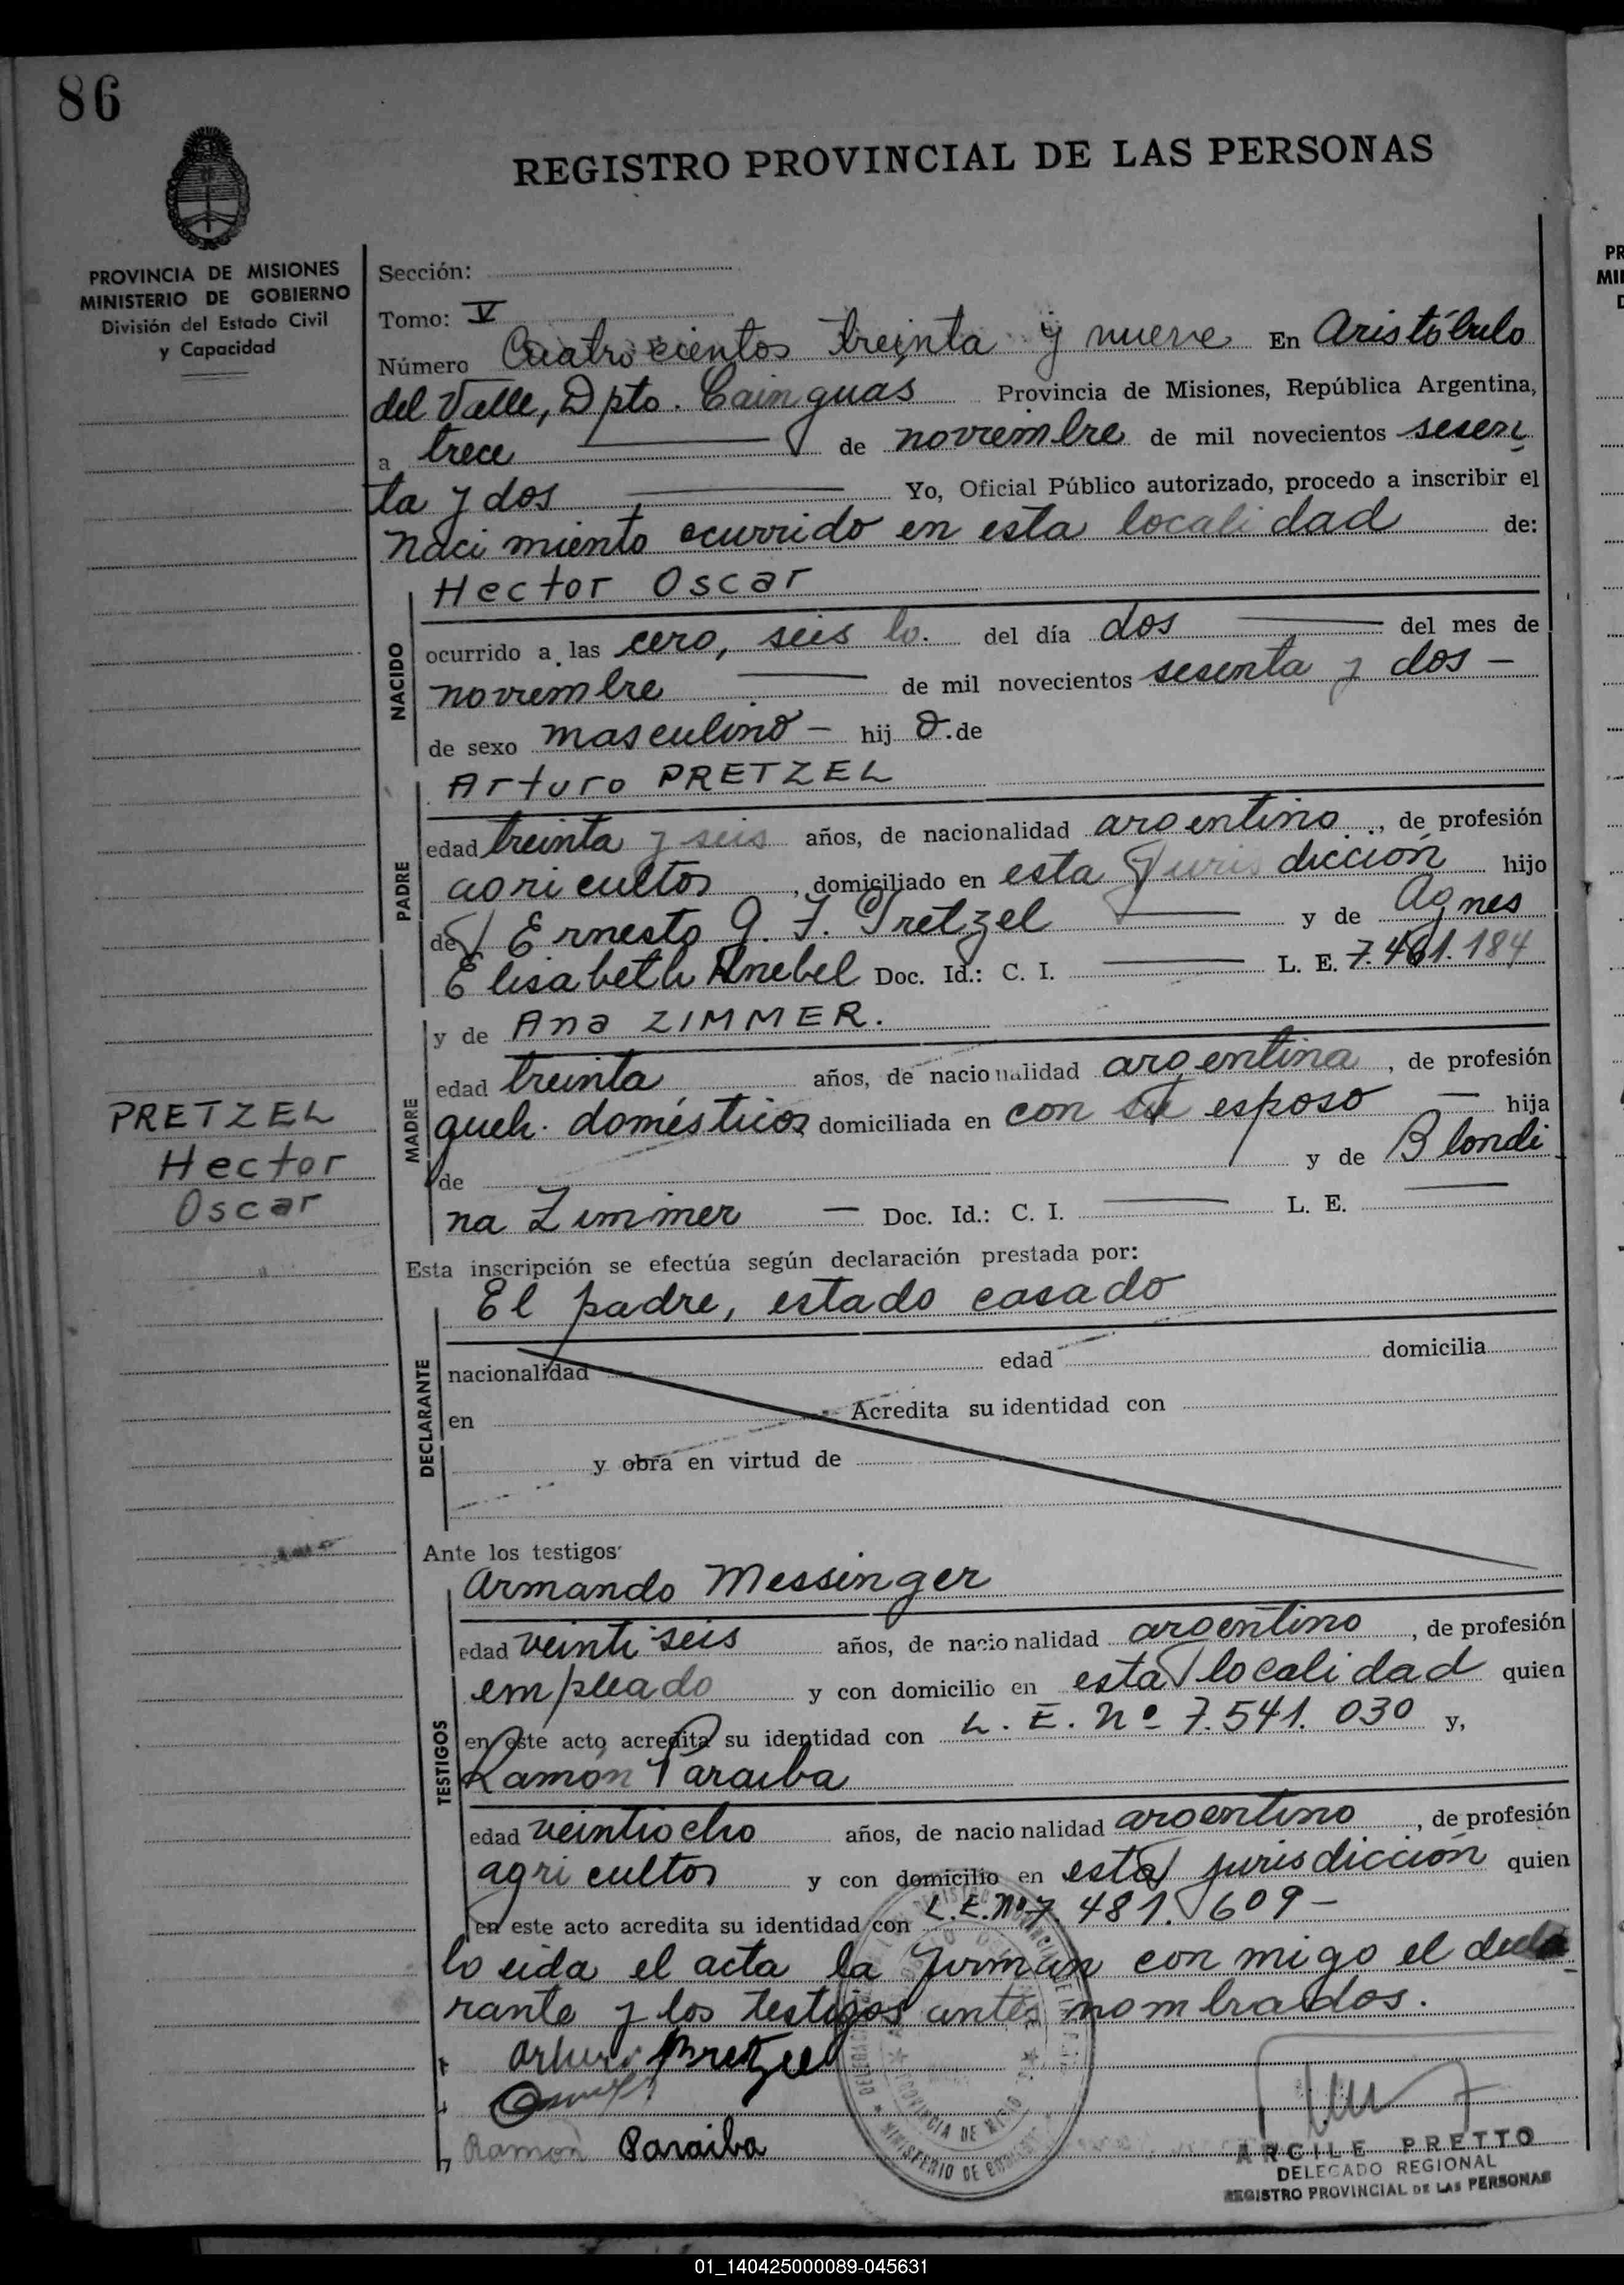 86
REGISTRO PROVINCIAL DE LAS PERSONAS
PROVINCIA DE MISIONES
MINISTERIO DE GOBIERNO
División del Estado Civil
y Capacidad
Sección:
Tomo: V
Número Cuatrocientos treinta y nueve En Aristóbulo
del Valle, Dpto. Cainguas Provincia de Misiones, República Argentina,
a trece de noviembre de mil novecientos sesen
ta y dos Yo, Oficial Público autorizado, procedo a inscribir el
nacimiento ocurrido en esta localidad de:
Hector Oscar
NACIDO
ocurrido a las cero, seis del día dos del mes de
noviembre de mil novecientos sesenta y dos -
de sexo masculino - hij o. de
Arturo PRETZEL
PADRE
edad treinta y seis años, de nacionalidad argentino, de profesión
agricultor, domiciliado en esta Jurisdicción hijo
de Ernesto G. F. Pretzel y de Agnes
Elisabeth Knebel Doc. Id.: C. I. L. E. 7.461.184
y de Ana ZIMMER.
MADRE
edad treinta años, de nacionalidad argentina, de profesión
queh. domésticos domiciliada en con su esposo - hija
de y de Blondi
na Zimmer - Doc. Id.: C. I. L. E.
PRETZEL
Hector
Oscar
Esta inscripción se efectúa según declaración prestada por:
El padre, estado casado
DECLARANTE
nacionalidad edad domicilia
en Acredita su identidad con
y obra en virtud de
Ante los testigos
Armando Messinger
TESTIGOS
edad veintiseis años, de nacionalidad argentino, de profesión
empleado y con domicilio en esta localidad quien
en este acto acredita su identidad con L. E. Nº 7.541.030 y,
Ramón Paraiba
edad veintiocho años, de nacionalidad argentino, de profesión
agricultor y con domicilio en esta jurisdicción quien
en este acto acredita su identidad con L.E. Nº 7 481.609-
leida el acta la firman conmigo el decla
rante y los testigos antes nombrados.
Arturo Pretzel
Ramón Paraiba
ARCILE PRETTO
DELEGADO REGIONAL
REGISTRO PROVINCIAL DE LAS PERSONAS
01_140425000089-045631